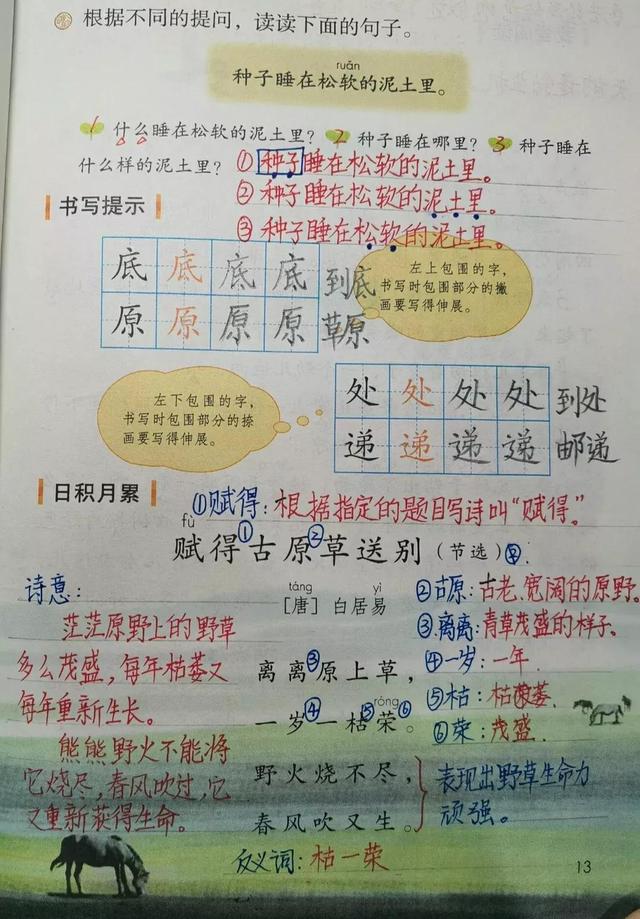 根据不同的提问，读读下面的句子。
ruǎn
种子睡在松软的泥土里。
1 什么睡在松软的泥土里？ 2 种子睡在哪里？ 3 种子睡在
什么样的泥土里？ ①种子睡在松软的泥土里。
②种子睡在松软的泥土里。
书写提示
③种子睡在松软的泥土里。
底 底 底 底 到底
原 原 原 原 草原
左上包围的字，
书写时包围部分的撇
画要写得伸展。
左下包围的字，
书写时包围部分的捺
画要写得伸展。
处 处 处 处 到处
递 递 递 递 邮递
日积月累
①赋得：根据指定的题目写诗叫“赋得。”
fù
赋得①古原②草送别（节选）
táng yì
［唐］白居易
诗意：
茫茫原野上的野草
多么茂盛，每年枯萎又
每年重新生长。
熊熊野火不能将
它烧尽，春风吹过，它
又重新获得生命。
离离③原上草，
róng
一岁④一枯⑤荣⑥。
野火烧不尽，
春风吹又生。
②古原：古老、宽阔的原野。
③离离：青草茂盛的样子。
④一岁：一年.
⑤枯：枯萎.
⑥荣：茂盛.
表现出野草生命力
顽强。
反义词：枯一荣
13